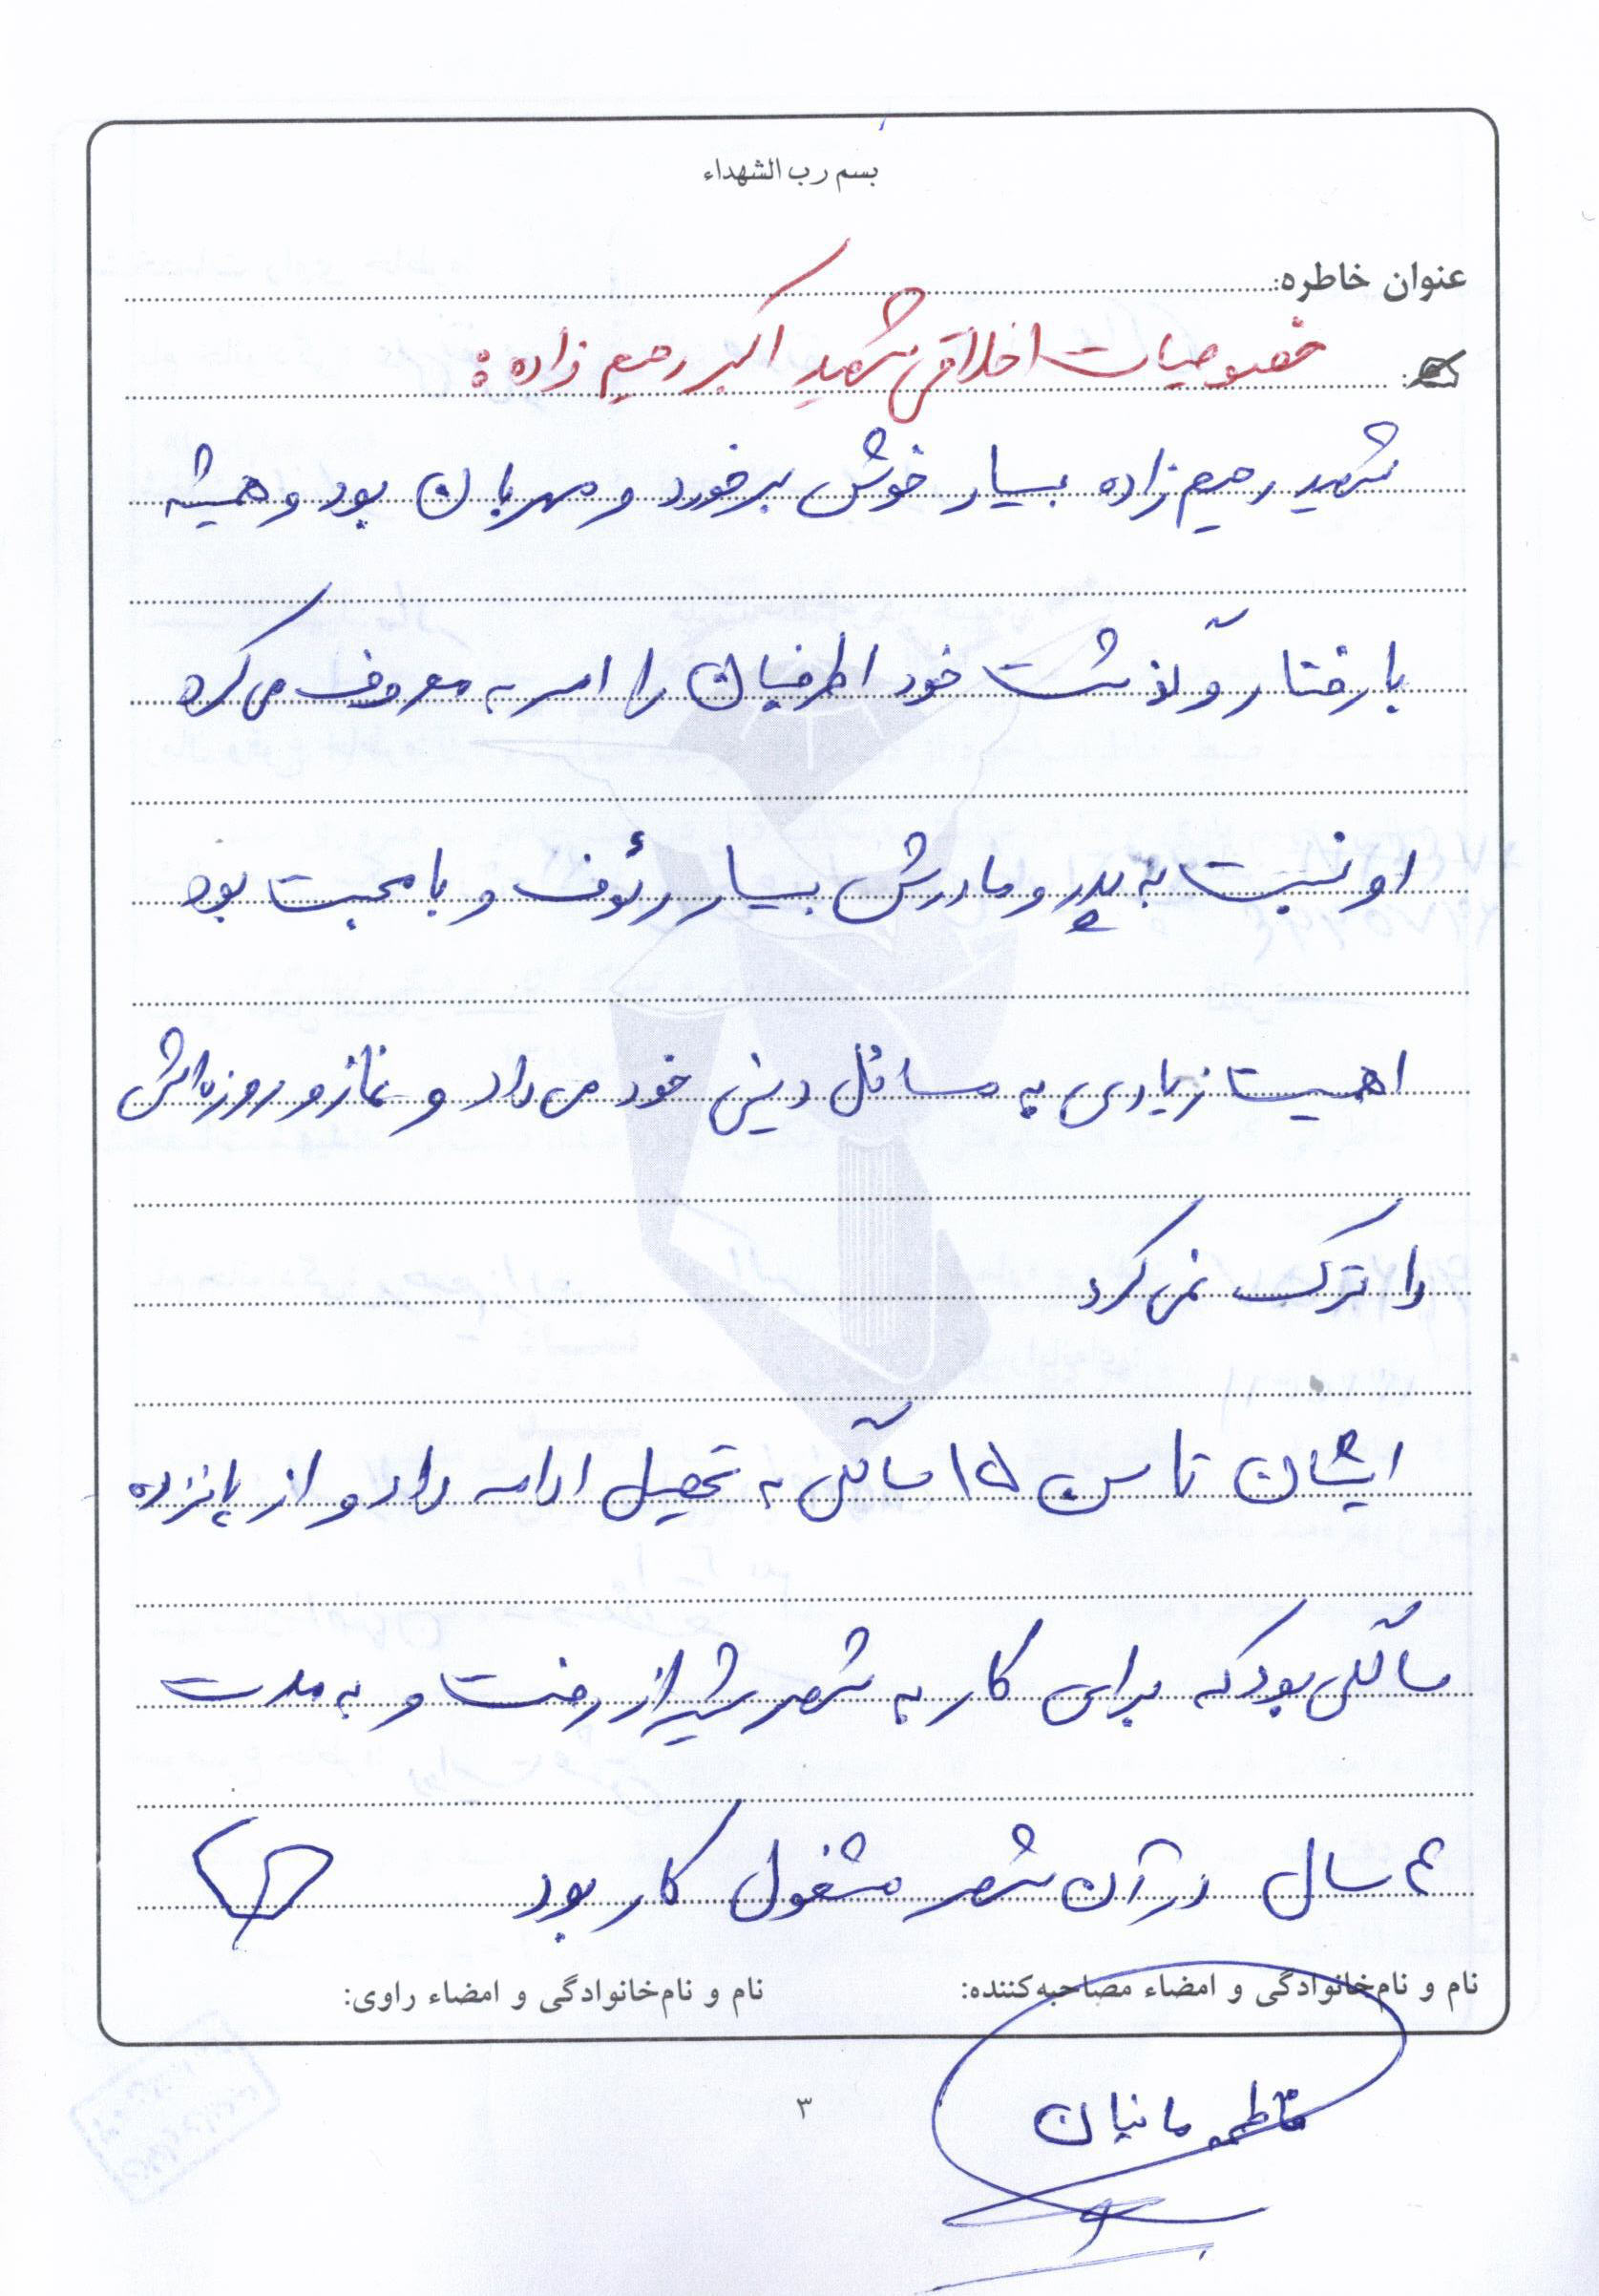 بسم رب الشهداء
عنوان خاطره:
خصوصیات اخلاقی شهید اکبر رحیم زاده:
شهید رحیم زاده بسیار خوش برخورد و مهربان بود و همیشه
با رفتار و گذشت خود اطرافیان را امر به معروف می کرد
او نسبت به پدر و مادرش بسیار رئوف و با محبت بود
اهمیت زیادی به مسائل دینی خود می داد و نماز و روزه اش
را ترک نمی کرد
ایشان تا سن ۱۵ سالگی به تحصیل ادامه داد و از پانزده
سالگی بود که برای کار به شهر شیراز رفت و به مدت
۴ سال در آن شهر مشغول کار بود
نام و نام‌خانوادگی و امضاء مصاحبه‌کننده: نام و نام‌خانوادگی و امضاء راوی:
فاطمه مانیان
۳